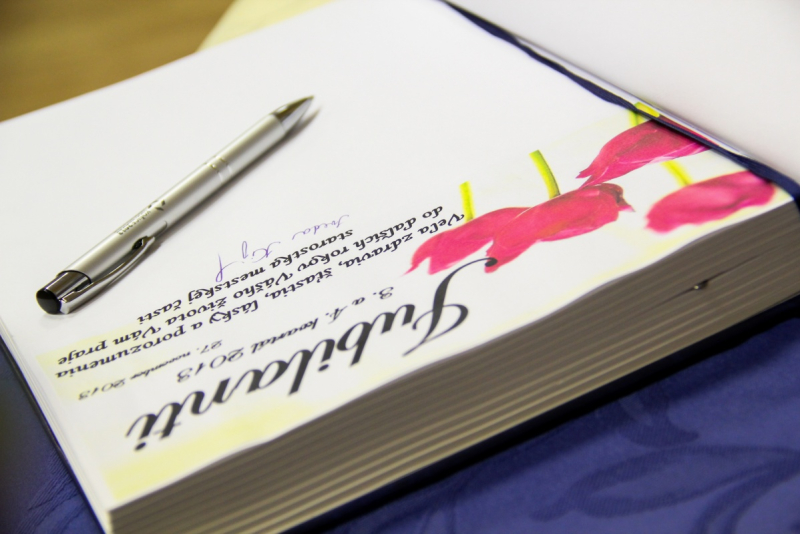 Jubilanti
3. a 4. kvartál 2013
27. november 2013
Veľa zdravia, šťastia, lásky a porozumenia
do ďalších rokov Vášho života Vám praje
starostka mestskej časti